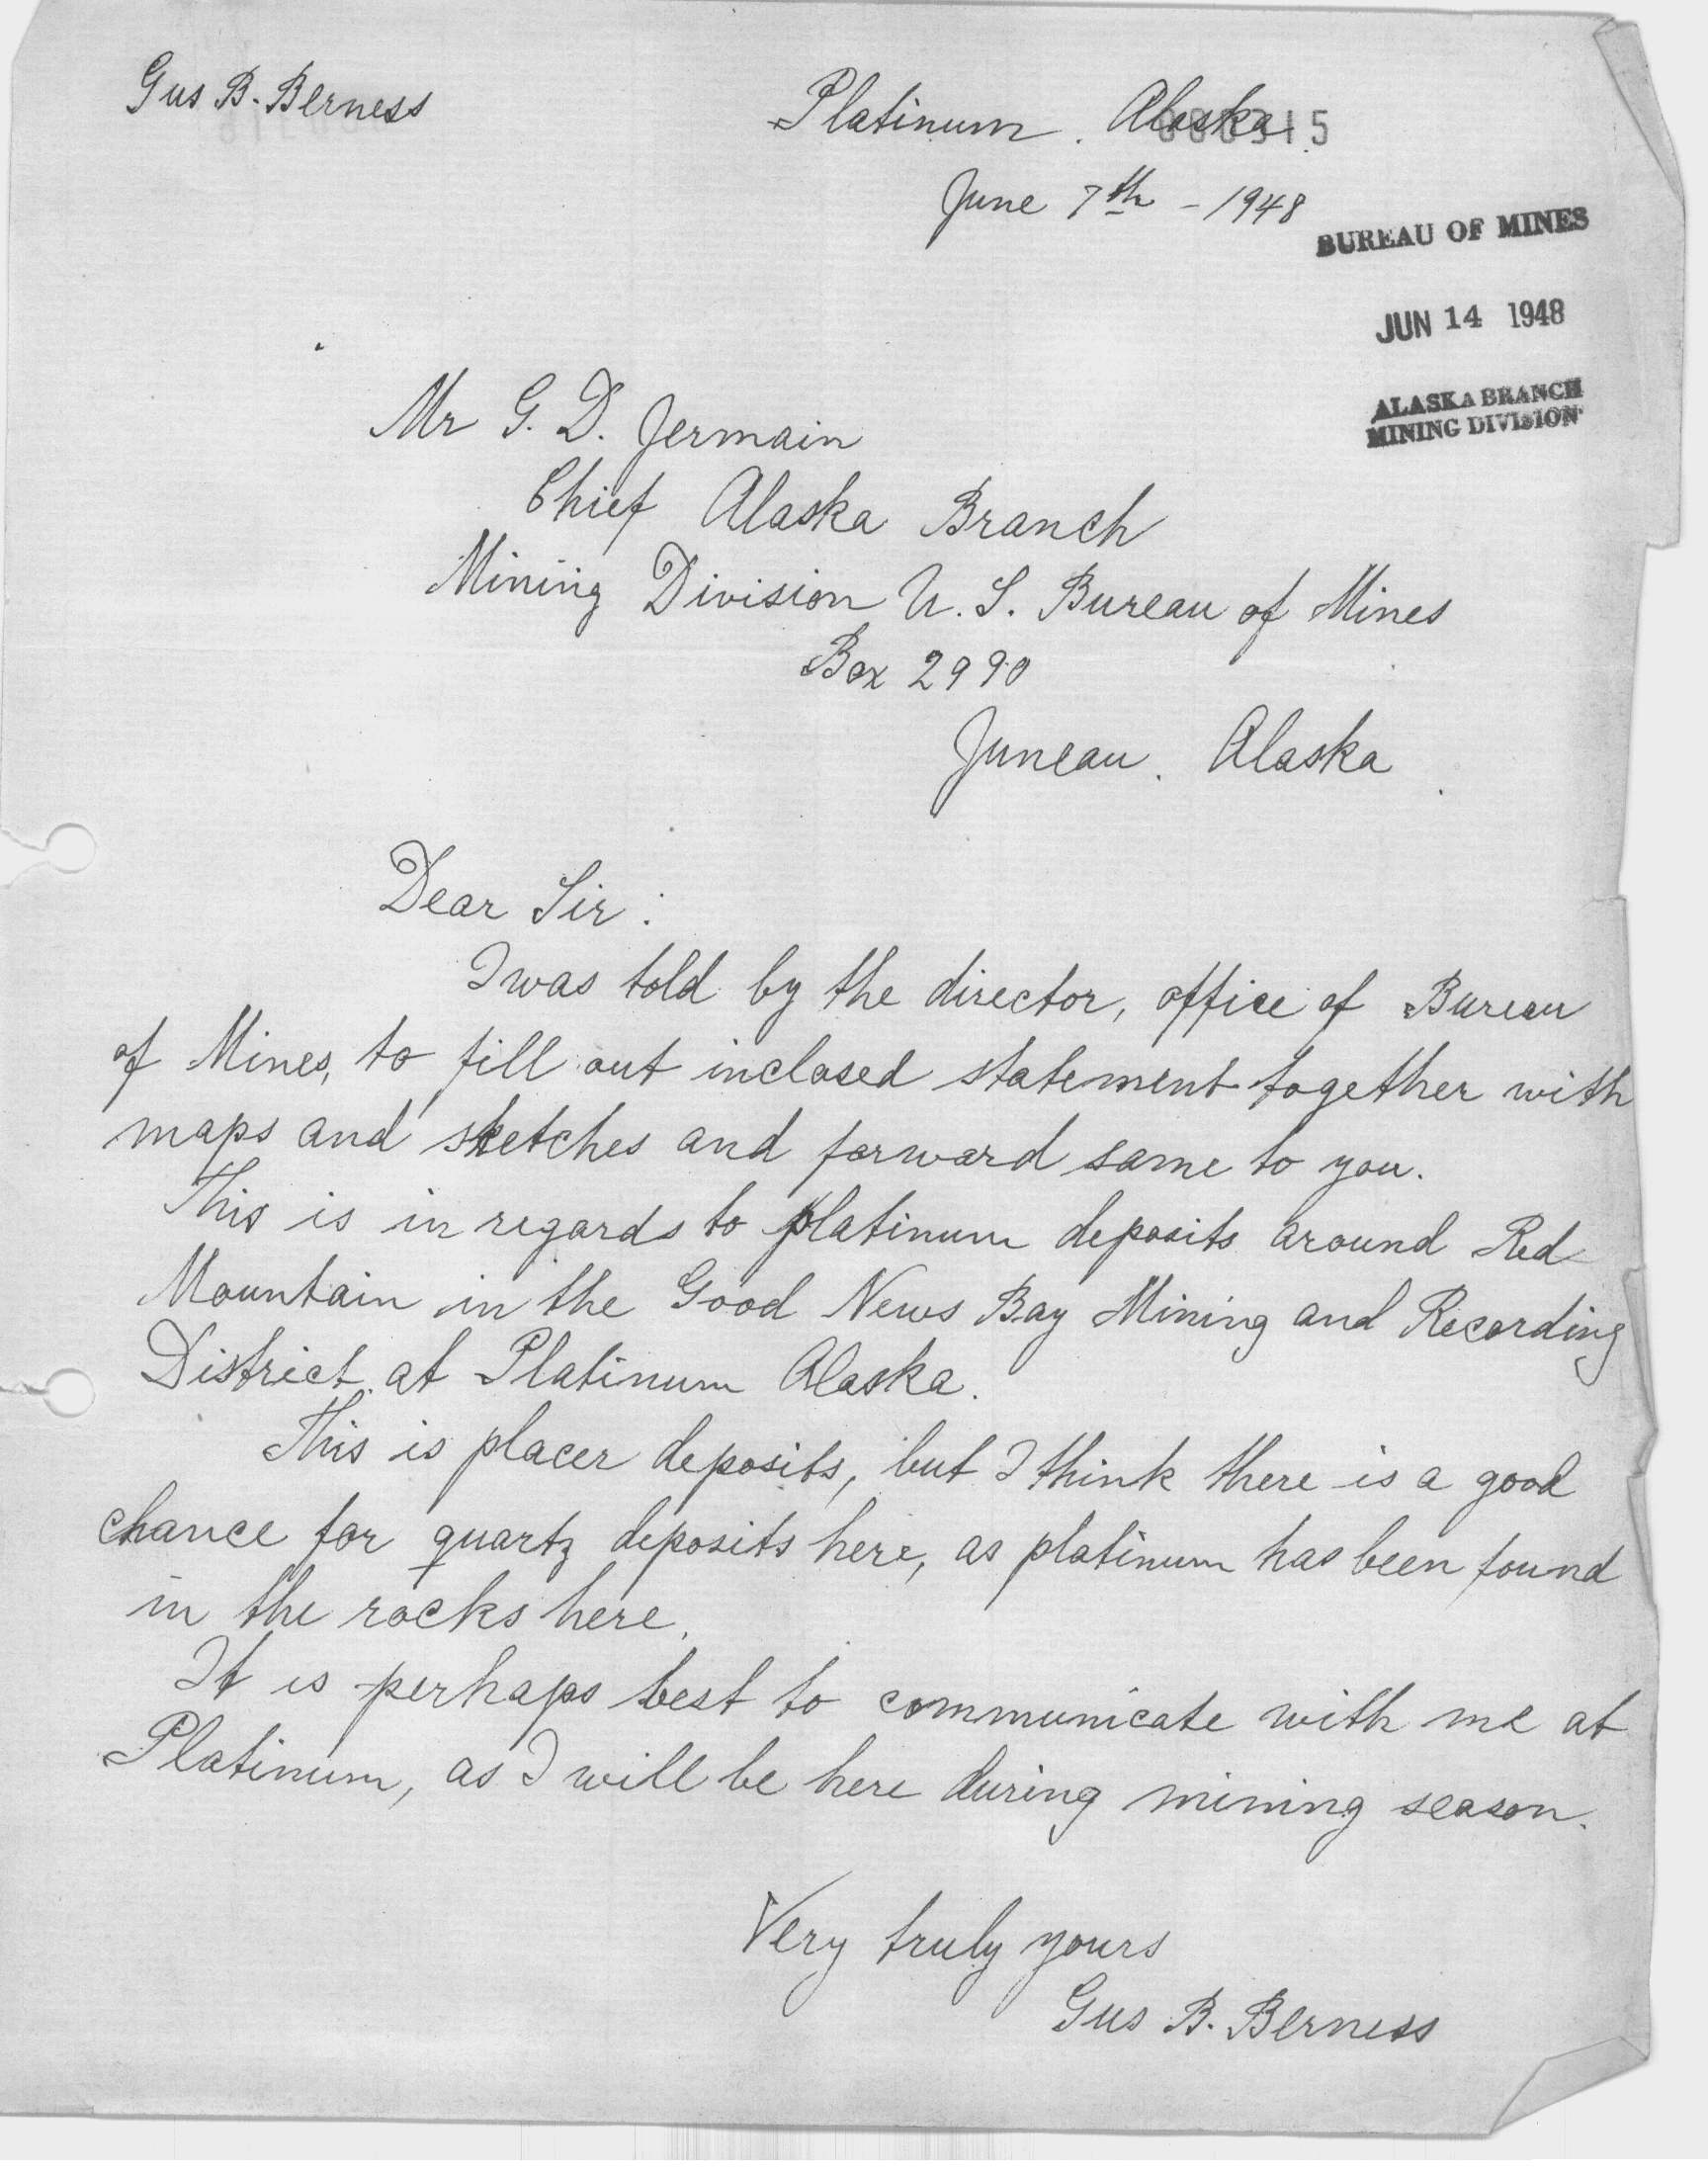 Gus B. Berness
Platinum. Alaska.
June 7th - 1948
BUREAU OF MINES
JUN 14 1948
ALASKA BRANCH
MINING DIVISION
Mr G. D. Jermain
Chief Alaska Branch
Mining Division U. S. Bureau of Mines
Box 2990
Juneau. Alaska
Dear Sir:
I was told by the director, office of Bureau
of Mines, to fill out inclosed statement together with
maps and sketches and forward same to you.
This is in regards to platinum deposits around Red
Mountain in the Good News Bay Mining and Recording
District at Platinum Alaska.
This is placer deposits, but I think there is a good
chance for quartz deposits here, as platinum has been found
in the rocks here.
It is perhaps best to communicate with me at
Platinum, as I will be here during mining season.
Very truly yours
Gus B. Berness